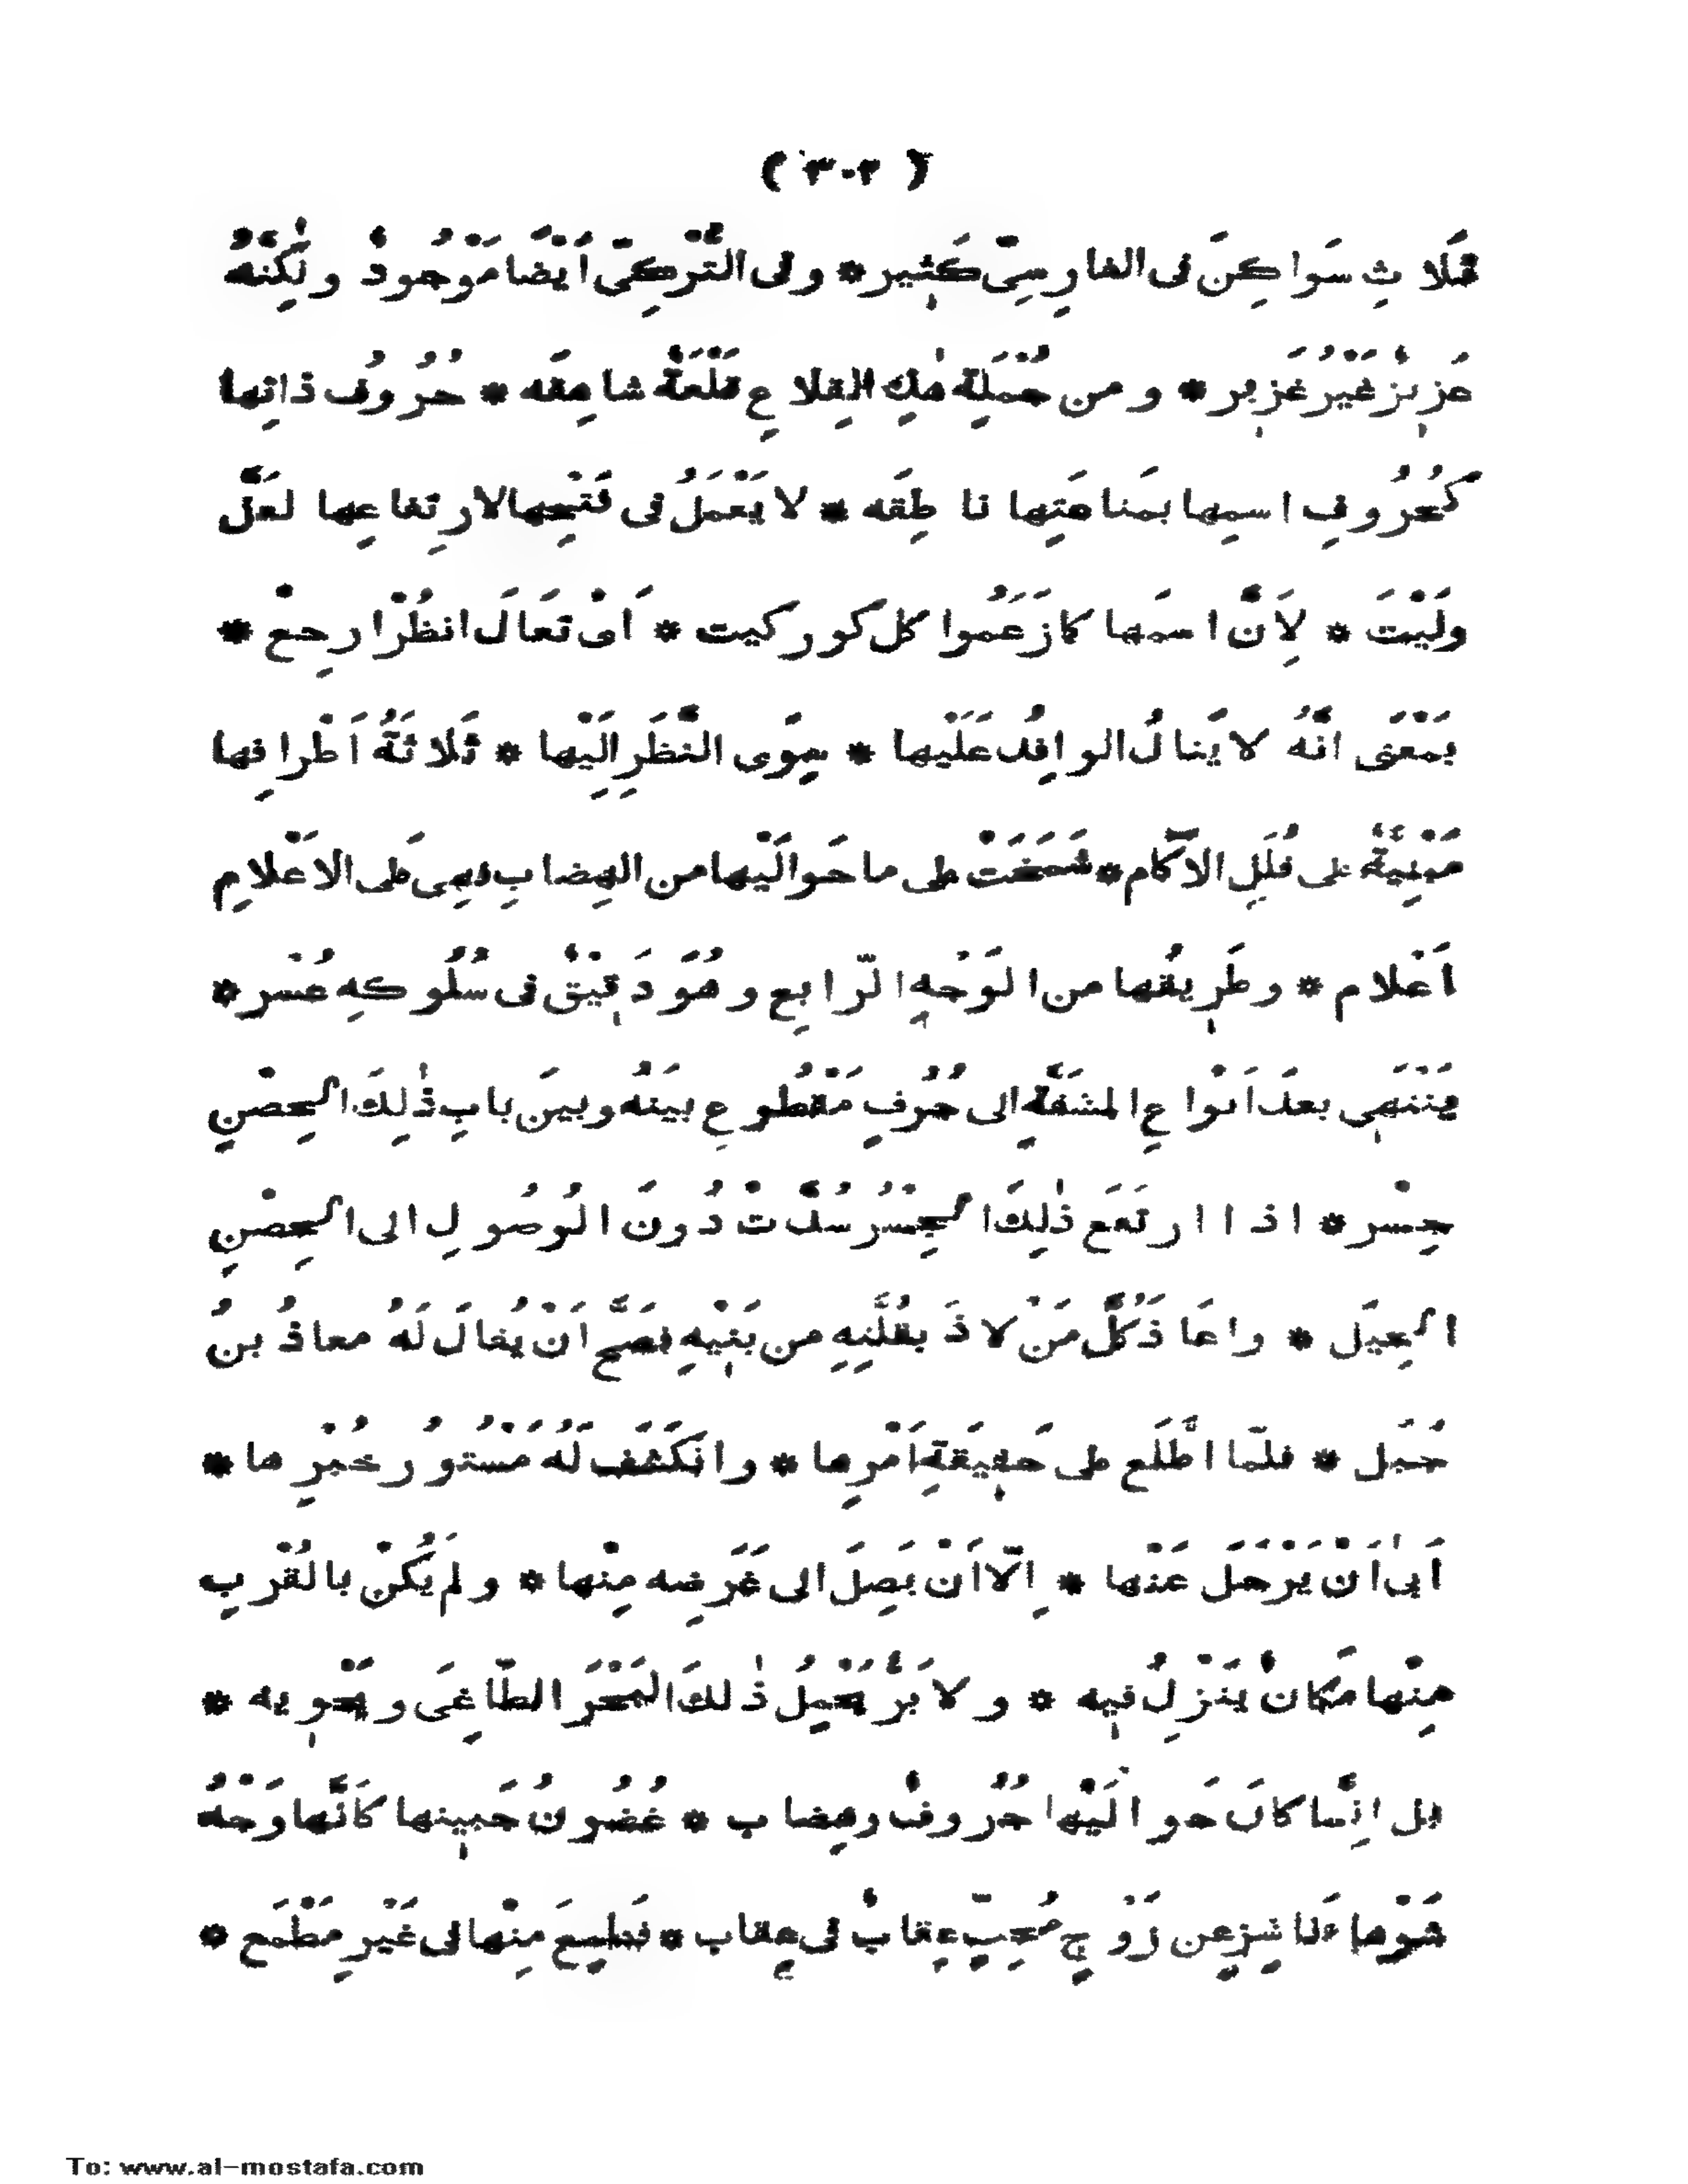 ( ٣٠٢ )
ثَلَاثِ سَواكِنَ فى الفارِسِىّ كَثير * وفى التُّرْكِىّ اَيْضًا مَوْجُودٌ ولٰكِنَّهُ
عَزِيزٌ غَيْرُ غَزِير * ومن جُمْلَةِ هٰذِه القِلاعِ قَلْعَةٌ شاهِقَه * حُرُوف ذاتِها
كَحُرُوفِ اسمِها بمَناعَتِها ناطِقَه * لا يَعْمَلُ فى فَتْحِها لارتِفاعِها لعَلَّ
ولَيْتَ * لِاَنَّ اسمَها كما زَعَمُوا كل كوركيت * اَىْ تَعَالَ انظُرْ ارجِعْ *
بمَعْنَى انَّهُ لا يَنالُ الوافِدُ عَلَيْها * سِوَى النَّظَرِ اِلَيْها * ثَلاثَةُ اَطْرافِها
مَبْنِيَّةٌ على قُلَلِ الآكام * شَمَخَتْ على ما حَوالَيْها من الهِضابِ فهِى عَلى الاعْلامِ
اَعْلام * وطَرِيقُها من الوَجْهِ الرّابِعِ وهُوَ دَقِيْقٌ فى سُلُوكِهِ عُسْر *
يَنْتَهِى بعدَ اَنْواعِ المشَقَّةِ الى جُرُفٍ مَقْطُوعٍ بينَهُ وبينَ بابِ ذٰلِكَ الحِصْنِ
جِسْر * اذا ارتَفَع ذٰلِكَ الجِسْرُ سُدَّتْ دُونَ الوُصُولِ الى الحِصْنِ
الحِيَل * واعَاذَ كُلَّ مَنْ لاذَ بقُلَّتِهِ من بَنِيْهِ فصَحَّ اَنْ يُقالَ لَهُ معاذُ بنُ
جَبَل * فلمّا اطَّلَع على حَقِيقَةِ اَمْرِها * وانكَشَف لَهُ مَسْتُورُ خُبْرِها *
اَبٰى اَنْ يَرْحَل عَنْها * اِلّا اَنْ يَصِلَ الى غَرَضِه مِنْها * ولم يَكُنْ بالقُرْبِ
مِنْها مَكانٌ يَنْزِلُ فِيه * ولا بَرٌّ يَحْمِلُ ذٰلكَ البَحْرَ الطّاغِى ويَحْوِيه *
بل اِنَّما كانَ حَوالَيْها جُرُوفٌ وهِضاب * غُضُونُ جَبِينها كَاَنَّها وَجْهُ
شَوْهاءَ ناشِزٍ عن زَوْجٍ مُحِبٍّ عِقابٌ فى عِقاب * فطَمِعَ مِنْها فى غَيْرِ مَطْمَع *
To: www.al-mostafa.com